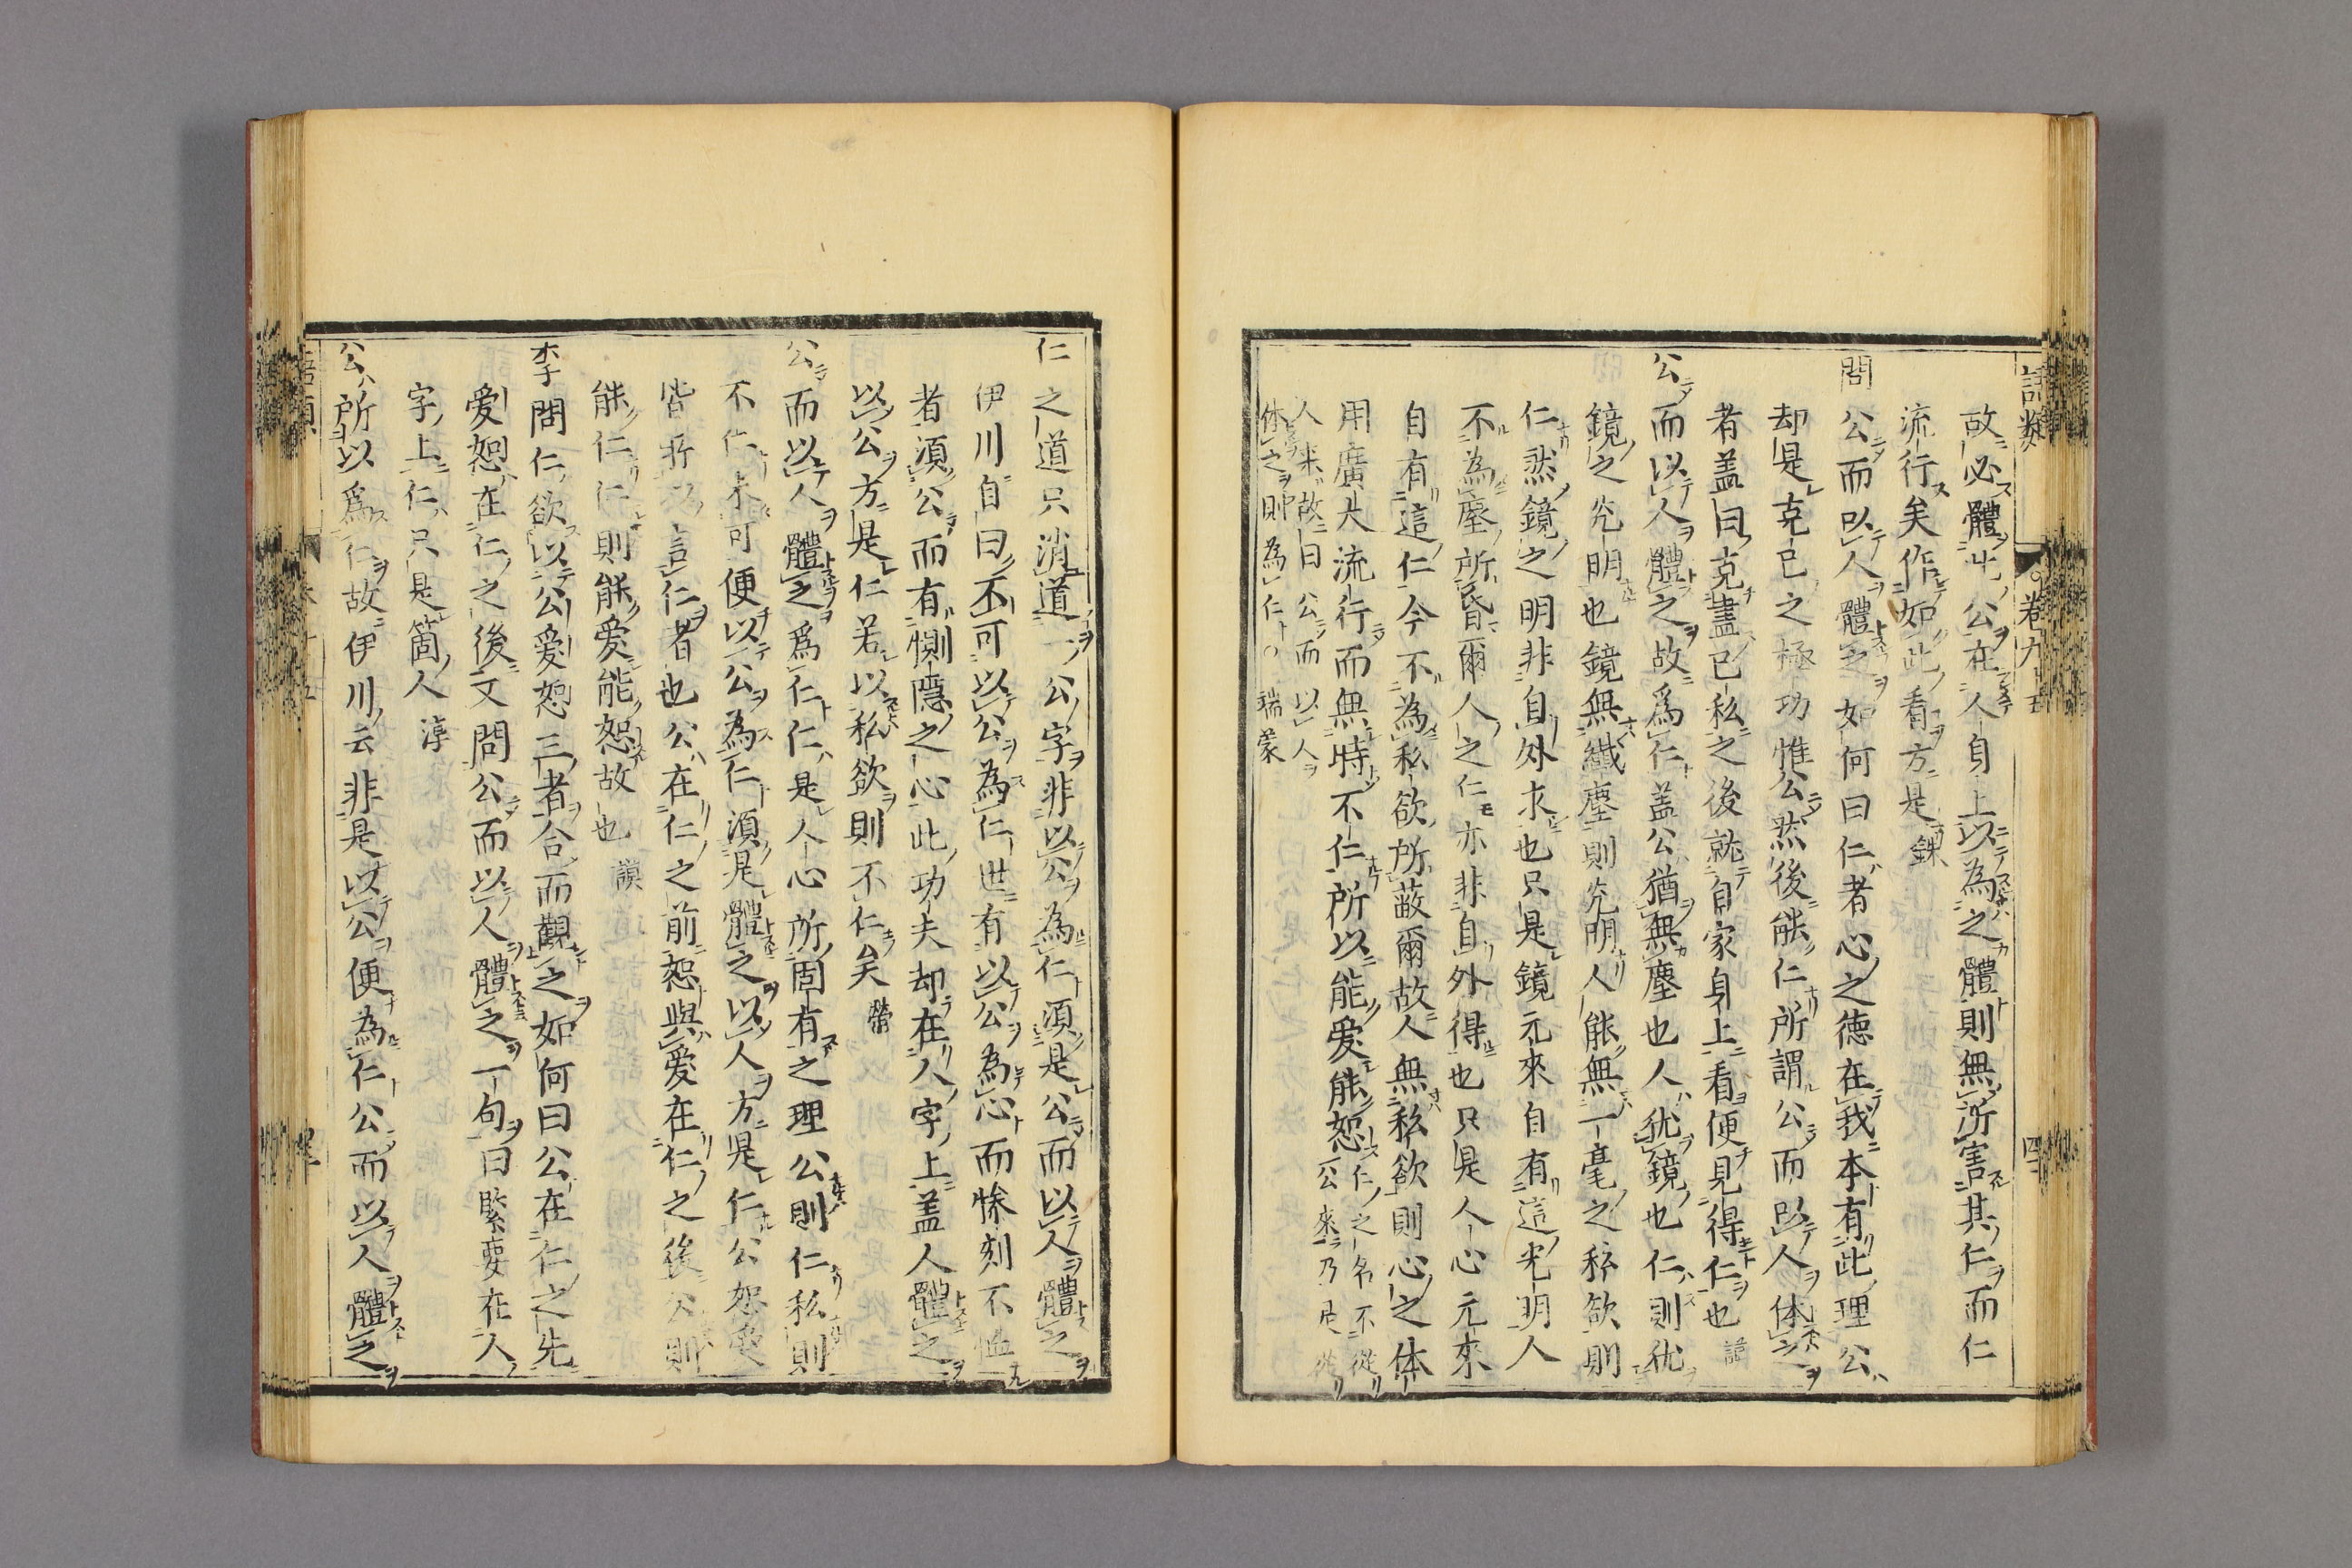 語類 卷九十五 四
故必體此公在人身上以為之體則無所害其仁而仁
流行矣作如此看方是 銖
問公而以人體之如何曰仁者心之德在我本有此理公
却是克己之極功惟公然後能仁所謂公而以人体之
者盖曰克盡己私之後就自家身上看便見得仁也 謨
公而以人體之故爲仁盖公猶無塵也人犹鏡也仁則犹
鏡之光明也鏡無纖塵則光明人能無一毫之私欲則
仁然鏡之明非自外求也只是鏡元來自有這光明人
不為塵所昏爾人之仁亦非自外得也只是人心元來
自有這仁今不為私欲所蔽爾故人無私欲則心之体
用廣大流行而無時不仁所以能爱能恕 仁之名不從公來乃是從
人來故曰公而以人体之則為仁。 端蒙
仁之道只消道一公字非以公為仁須是公而以人體之
伊川自曰不可以公為仁世有以公為心而慘刻不恤
者須公而有惻隱之心此功夫却在人字上盖人體之
以公方是仁若以私欲則不仁矣 㽦
公而以人體之爲仁仁是人心所固有之理公則仁私則
不仁未可便以公為仁須是體之以人方是仁公恕爱
皆所以言仁者也公在仁之前恕與爱在仁之後公則
能仁仁則能爱能恕故也 謨
李問仁欲以公爱恕三者合而觀之如何曰公在仁之先
爱恕在仁之後文問公而以人體之一句曰緊要在人
字上仁只是箇人 淳
公所以爲仁故伊川云非是以公便為仁公而以人體之